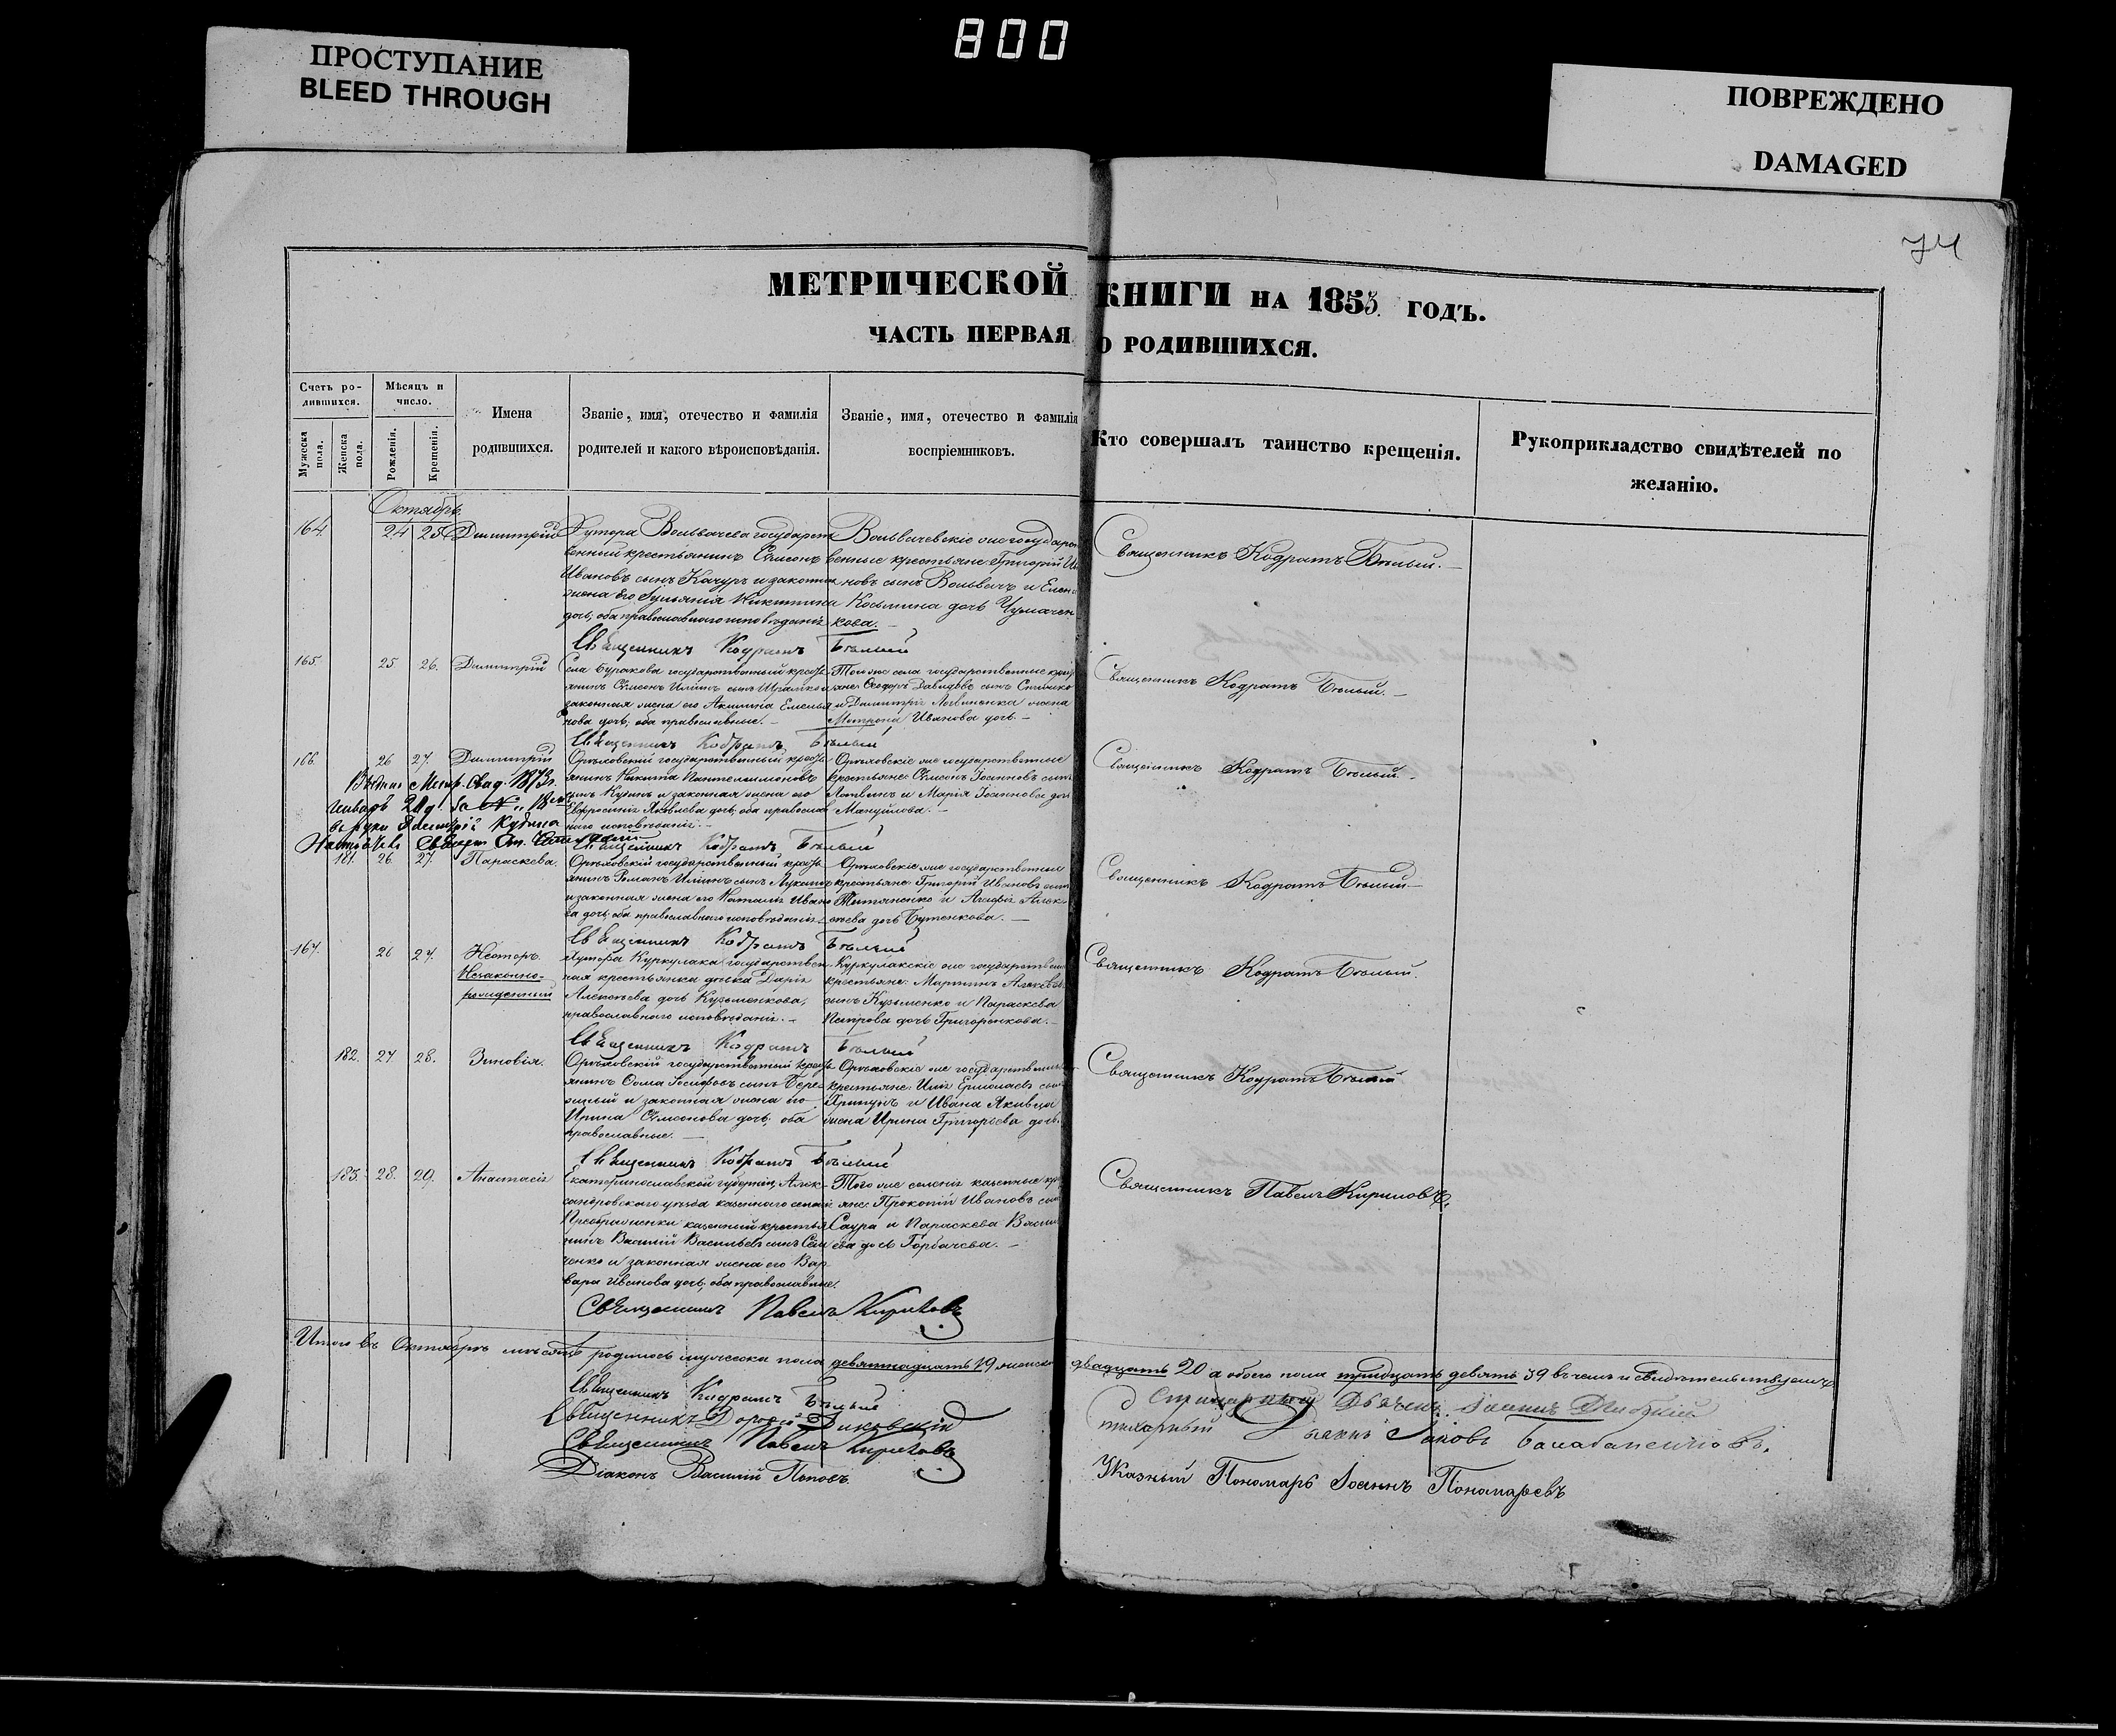 800
ПРОСТУПАНИЕ
BLEED THROUGH
ПОВРЕЖДЕНО
DAMAGED
74
МЕТРИЧЕСКОЙ КНИГИ НА 1853 ГОДЪ.
ЧАСТЬ ПЕРВАЯ О РОДИВШИХСЯ.
Счетъ ро-
дившихся.
Мужеска пола.
Женска пола.
Мѣсяцъ и
число.
Рожденія.
Крещенія.
Имена
родившихся.
Званіе, имя, отечество и фамилія
родителей и какого вѣроисповѣданія.
Званіе, имя, отечество и фамилія
воспріемниковъ.
Кто совершалъ таинство крещенія.
Рукоприкладство свидѣтелей по
желанію.
Октябрь.
164. 24 25 Димитрій
Хутора Вольвачева государст
венный крестьянинъ Сѵмеонъ
Ивановъ сынъ Качуръ и законная
жена его Никитина
дочь, оба православнаго исповѣданія
Вольвачевскіе же государст
венные крестьяне: Григорій Ива
новъ сынъ Вольвачъ и Елена
Козьмина дочь Чумачен
кова.
Священникъ Кодратъ Бѣлый.
Священникъ Кодратъ Бѣлый
165. 25 26. Димитрій
Села Бурлакова государственный кресть
янинъ Сѵмеонъ Ильинъ сынъ
законная жена его Акилина Емелья
нова дочь, оба православные.
Того же села государственные крест
яне: Ѳеодоръ Давидовъ сынъ
и Димитрія жена
Матрона Иванова дочь.
Священникъ Кодратъ Бѣлый.
Священникъ Кодратъ Бѣлый
166. 26 27. Димитрій
Орѣховскій государственный кресть
янинъ Никита Пантелеимоновъ
сынъ и законная жена его
Евфросинія Яковлева дочь, оба православ
наго исповѣданія.
Орѣховскіе же государственные
крестьяне: Сѵмеонъ Іоанновъ сынъ
и Марія Іоаннова дочь
Мануйлова.
Священникъ Кодратъ Бѣлый.
Священникъ Кодратъ Бѣлый
181. 26 27. Параскева.
Орѣховскій государственный кресть
янинъ Романъ Ильинъ сынъ
и законная жена его Наталія Ивано
ва дочь, оба православнаго исповѣданія.
Орѣховскіе же государственные
крестьяне: Григорій Ивановъ сынъ
и Агафія Алек
сѣева дочь Бутенкова.
Священникъ Кодратъ Бѣлый
Священникъ Кодратъ Бѣлый
167. 26 27. Несторъ.
Незаконно-
рожденный
Хутора Куркулака государствен
ная крестьянка дѣвка Дарія
Алексѣева дочь Кузьменкова,
православнаго исповѣданія.
Куркулакскіе же государственные
крестьяне: Мартинъ Алексѣевъ
сынъ Кузьменко и Параскева
Петрова дочь Григоренкова.
Священникъ Кодратъ Бѣлый.
Священникъ Кодратъ Бѣлый
182. 27 28. Зиновія.
Орѣховскій государственный кресть
янинъ Ѳома Іосифовъ сынъ
и законная жена его
Ирина Сѵмеонова дочь, оба
православные.
Орѣховскіе же государственные
крестьяне: Илія Ермолаевъ сынъ
и Ивана Якивца
жена Ирина Григорьева дочь.
Священникъ Кодратъ Бѣлый
Священникъ Кодратъ Бѣлый
183. 28. 29. Анастасія
Екатеринославской губерніи, Алек
сандровского уѣзда казеннаго селенія
Преображенки казенный крестья
нинъ Василій Васильевъ сынъ Сем
ченко и законная жена его Вар
вара Иванова дочь, оба православные.
Того же селенія казенные крест
яне: Прокопій Ивановъ сынъ
Саура и Параскева Василь
ева дочь Горбачева.
Священникъ Павелъ Кириловъ.
Священникъ Павелъ Кириловъ
Итого въ Октябрѣ мѣсяцѣ родилось мужеска пола девятнадцать 19 женска двадцать 20 а обоего пола тридцать девять 39 въ чемъ и свидѣтельствуемъ
Священникъ Кодратъ Бѣлый
Священникъ
Священникъ Павелъ Кириловъ
Діаконъ Василій Поповъ
Указный Пономарь Іоаннъ Пономаревъ